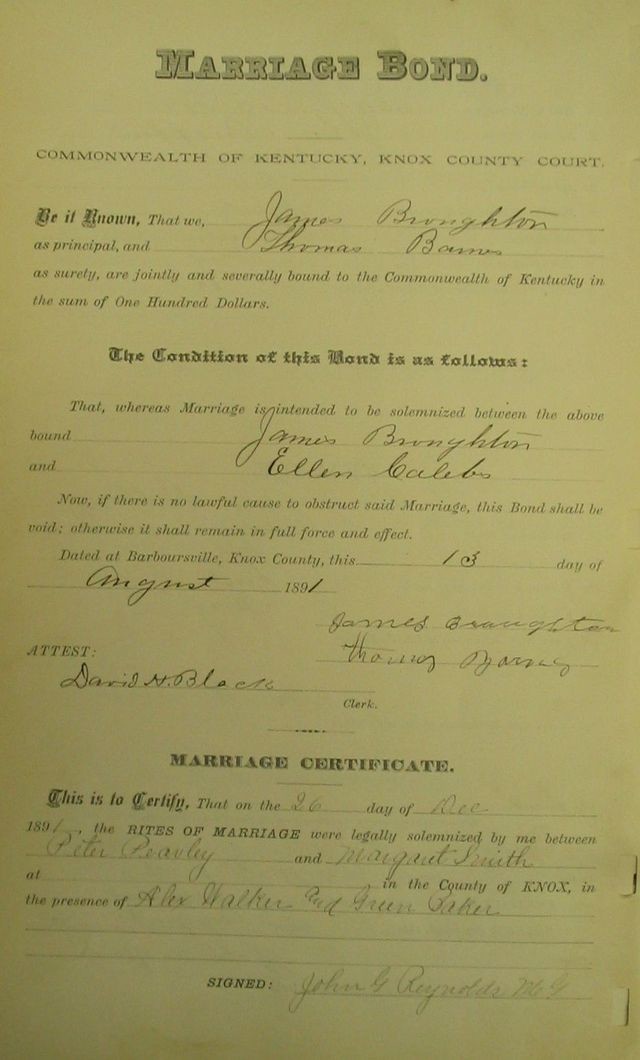 MARRIAGE BOND.
COMMONWEALTH OF KENTUCKY, KNOX COUNTY COURT.
Be it Known, That we, James Broughton
as principal, and Thomas Barnes
as surety, are jointly and severally bound to the Commonwealth of Kentucky in
the sum of One Hundred Dollars.
The Condition of this Bond is as follows:
That, whereas Marriage is intended to be solemnized between the above
bound James Broughton
and Ellen Calebs
Now, if there is no lawful cause to obstruct said Marriage, this Bond shall be
void; otherwise it shall remain in full force and effect.
Dated at Barboursville, Knox County, this 13 day of
August 1891
James Braughton
ATTEST: Thomas
David H. Black
Clerk.
MARRIAGE CERTIFICATE.
This is to Certify, That on the 26 day of Dec
1891, the RITES OF MARRIAGE were legally solemnized by me between
Peter Peavley and Margaret Smith
at in the County of KNOX, in
the presence of Alex Walker and Green Baker
SIGNED: John G Reynolds M G